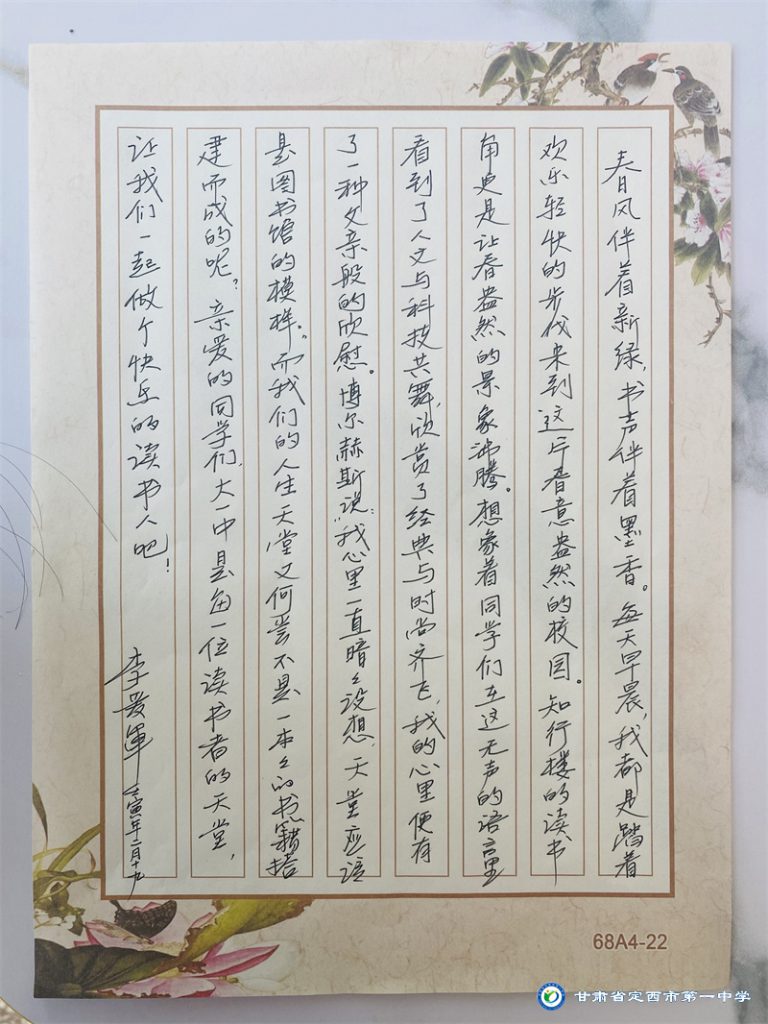 春日风伴着新绿，书声伴着墨香。每天早晨，我都是踏着
欢乐轻快的步伐来到这片春意盎然的校园。知行楼的读书
角更是让春盎然的景象沸腾。想象着同学们在这无声的语言里
看到了人文与科技共舞，欣赏了经典与时尚齐飞，我的心里便有
了一种父亲般的欣慰。博尔赫斯说：“我心里一直暗々设想，天堂应该
是图书馆的模样。”而我们的人生天堂又何尝不是一本々的书籍搭
建而成的呢？亲爱的同学们，大一中是每一位读书者的天堂，
让我们一起做个快乐的读书人吧！
李爱军 壬寅年二月十九
68A4-22
甘肃省定西市第一中学